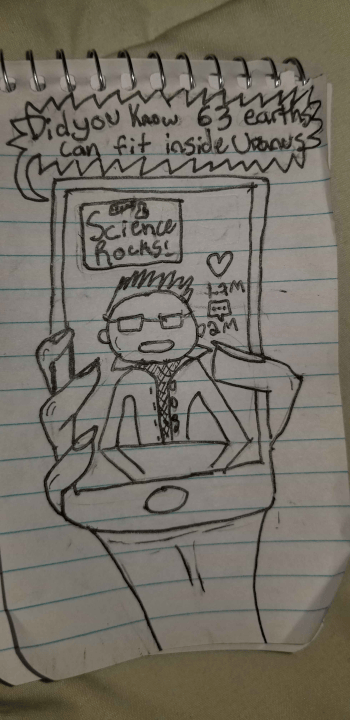 Did you Know 63 earths
can fit inside Uranus
Science
Rocks!
1.2M
2M